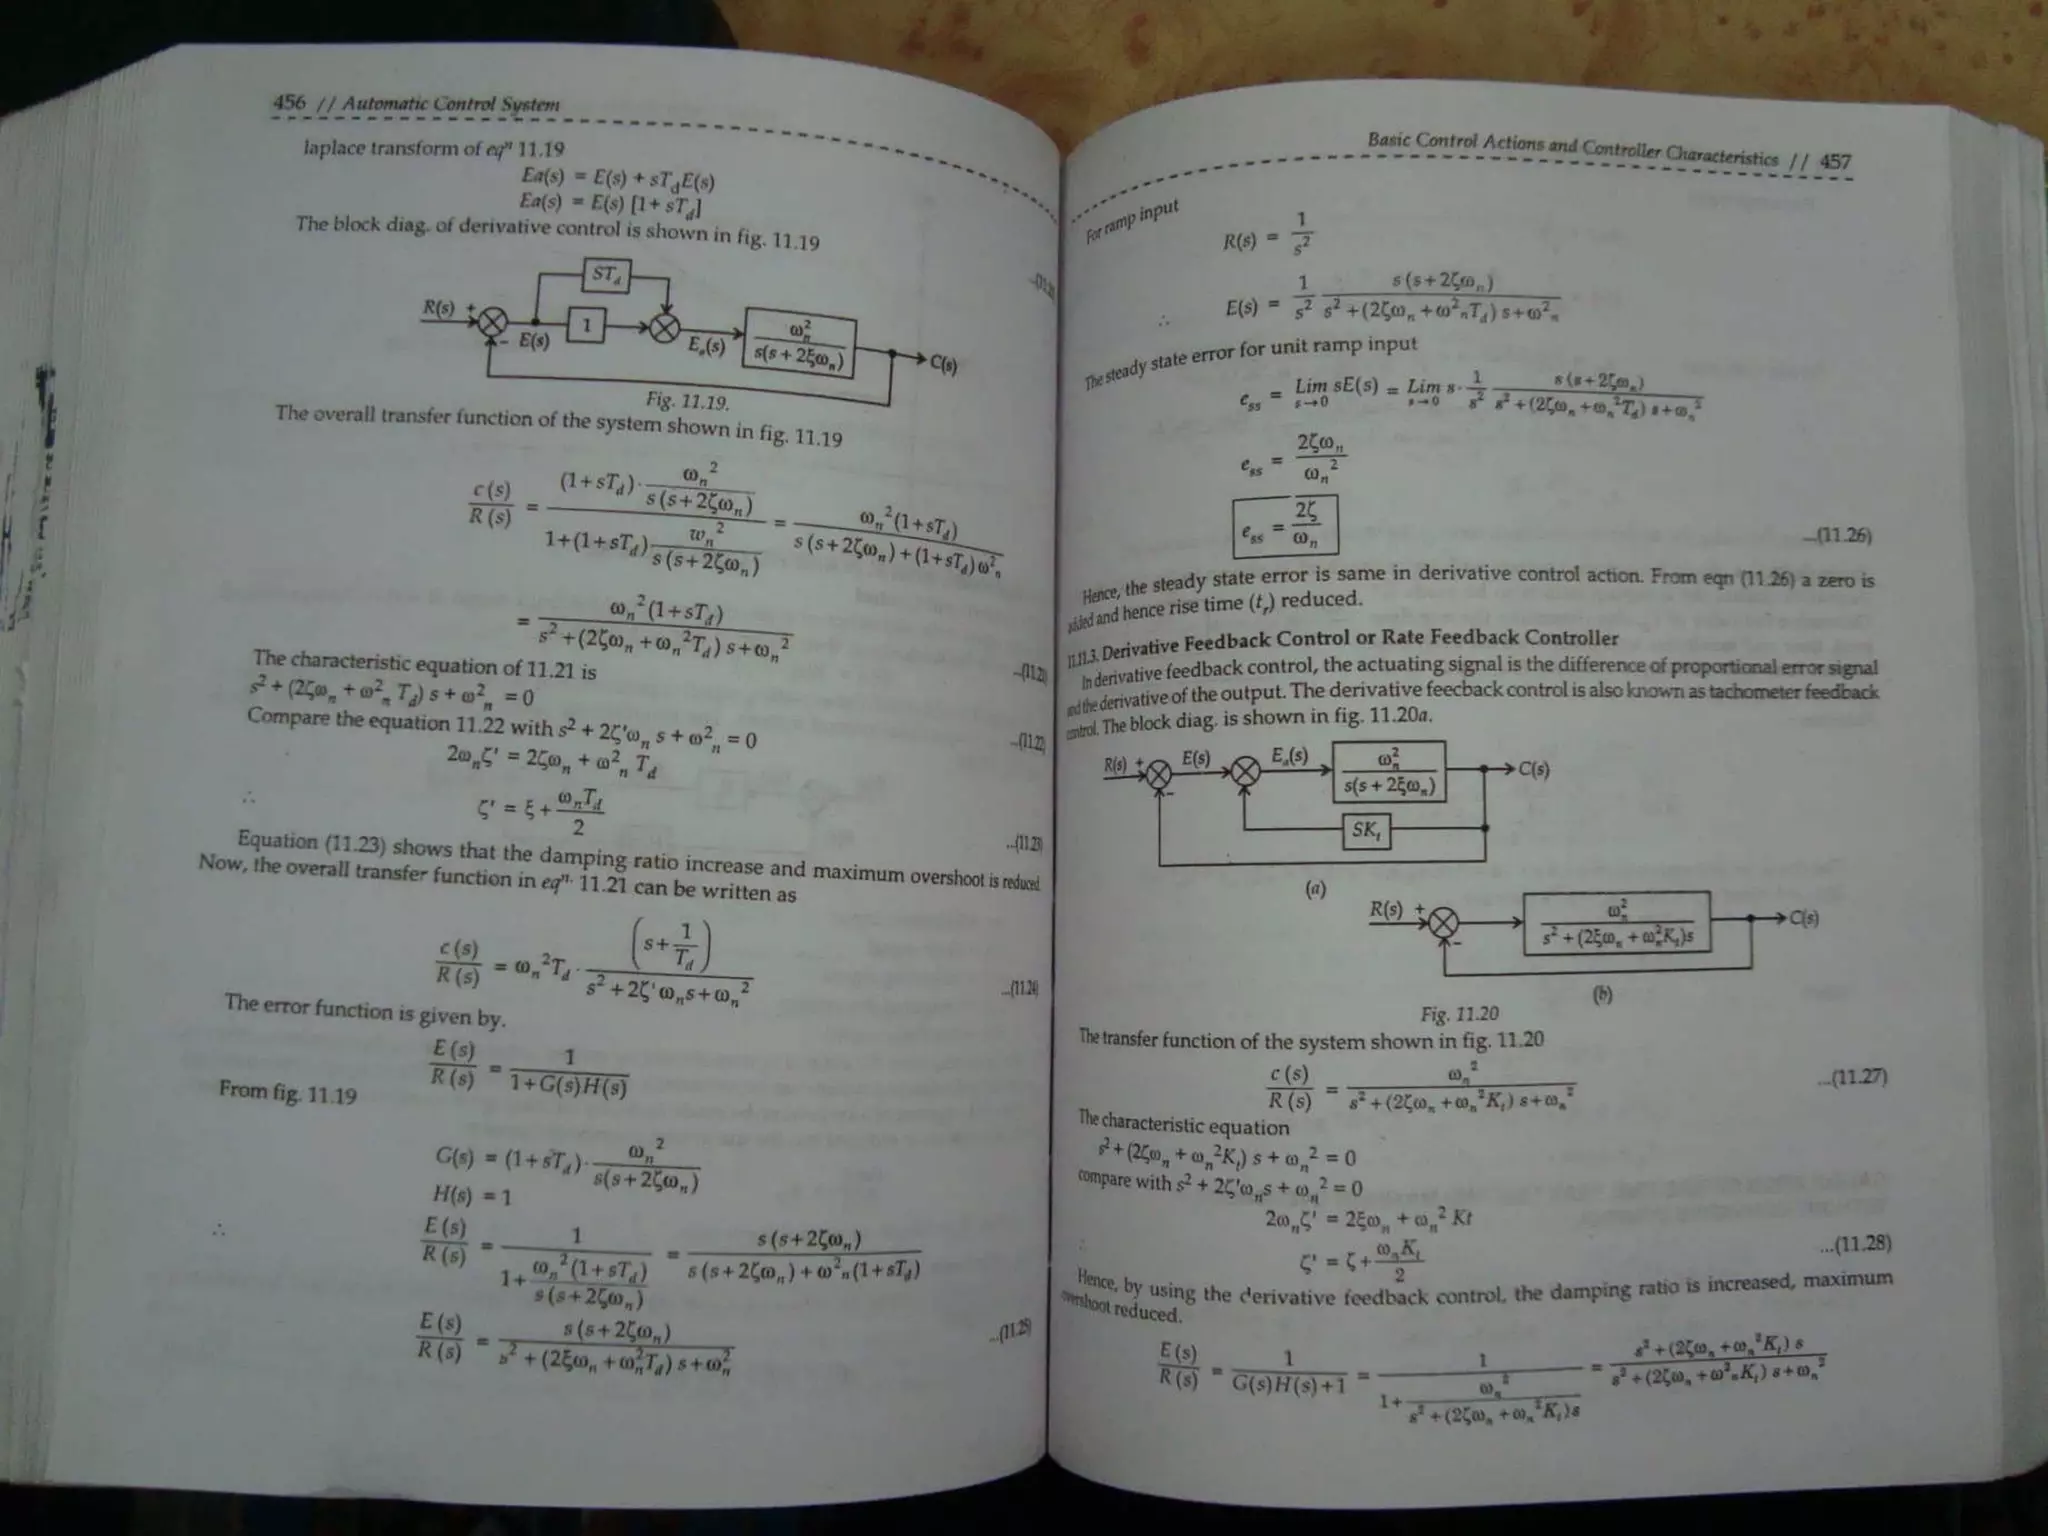 456 // Automatic Control System
laplace transform of eqⁿ 11.19
Ea(s) = E(s) + sT_d E(s)
Ea(s) = E(s) [1+ sT_d]
The block diag. of derivative control is shown in fig. 11.19
ST_d
R(s) + 1 ω_n^2 / s(s + 2ξω_n) C(s)
- E(s) E_a(s)
Fig. 11.19.
The overall transfer function of the system shown in fig. 11.19
c(s)/R(s) = (1+sT_d)· ω_n^2/s(s+2ζω_n) / 1+(1+sT_d) w_n^2/s(s+2ζω_n) = ω_n^2(1+sT_d) / s(s+2ζω_n)+(1+sT_d)ω^2_n
= ω_n^2(1+sT_d) / s^2+(2ζω_n+ω_n^2T_d)s+ω_n^2
The characteristic equation of 11.21 is
s^2 + (2ζω_n + ω^2_n T_d) s + ω^2_n = 0
...(11.22)
Compare the equation 11.22 with s^2 + 2ζ'ω_n s + ω^2_n = 0
2ω_nζ' = 2ζω_n + ω^2_n T_d
∴ ζ' = ξ + ω_nT_d/2 ...(11.23)
Equation (11.23) shows that the damping ratio increase and maximum overshoot is reduced.
Now, the overall transfer function in eqⁿ· 11.21 can be written as
c(s)/R(s) = ω_n^2T_d · (s+1/T_d) / s^2+2ζ'ω_ns+ω_n^2 ...(11.24)
The error function is given by.
E(s)/R(s) = 1 / 1+G(s)H(s)
From fig. 11.19
G(s) = (1+sT_d)· ω_n^2 / s(s+2ζω_n)
H(s) = 1
∴ E(s)/R(s) = 1 / 1+ ω_n^2(1+sT_d)/s(s+2ζω_n) = s(s+2ζω_n) / s(s+2ζω_n)+ω^2_n(1+sT_d)
E(s)/R(s) = s(s+2ζω_n) / s^2+(2ξω_n+ω_n^2T_d)s+ω_n^2 ...(11.25)
Basic Control Actions and Controller Characteristics // 457
For ramp input
R(s) = 1/s^2
∴ E(s) = 1/s^2 s(s+2ζω_n) / s^2+(2ζω_n+ω^2_nT_d)s+ω^2_n
The steady state error for unit ramp input
e_ss = Lim s→0 sE(s) = Lim s→0 s· 1/s^2 s(s+2ζω_n) / s^2+(2ζω_n+ω_n^2T_d)s+ω_n^2
e_ss = 2ζω_n / ω_n^2
e_ss = 2ζ/ω_n ...(11.26)
Hence, the steady state error is same in derivative control action. From eqn (11.26) a zero is
added and hence rise time (t_r) reduced.
11.11.3. Derivative Feedback Control or Rate Feedback Controller
In derivative feedback control, the actuating signal is the difference of proportional error signal
and the derivative of the output. The derivative feecback control is also known as tachometer feedback
control. The block diag. is shown in fig. 11.20a.
R(s) + E(s) E_a(s) ω_n^2 / s(s + 2ξω_n) C(s)
-
SK_t
(a)
R(s) + ω_n^2 / s^2 + (2ξω_n + ω_n^2K_t)s C(s)
-
(b)
Fig. 11.20
The transfer function of the system shown in fig. 11.20
c(s)/R(s) = ω_n^2 / s^2+(2ζω_n+ω_n^2K_t)s+ω_n^2 ...(11.27)
The characteristic equation
s^2 + (2ζω_n + ω_n^2K_t) s + ω_n^2 = 0
compare with s^2 + 2ζ'ω_ns + ω_n^2 = 0
2ω_nζ' = 2ξω_n + ω_n^2 Kt
ζ' = ζ + ω_nK_t/2 ...(11.28)
Hence, by using the derivative feedback control, the damping ratio is increased, maximum
overshoot reduced.
E(s)/R(s) = 1 / G(s)H(s)+1 = 1 / 1+ ω_n^2/s^2+(2ζω_n+ω_n^2K_t)s = s^2+(2ζω_n+ω_n^2K_t)s / s^2+(2ζω_n+ω^2_nK_t)s+ω_n^2